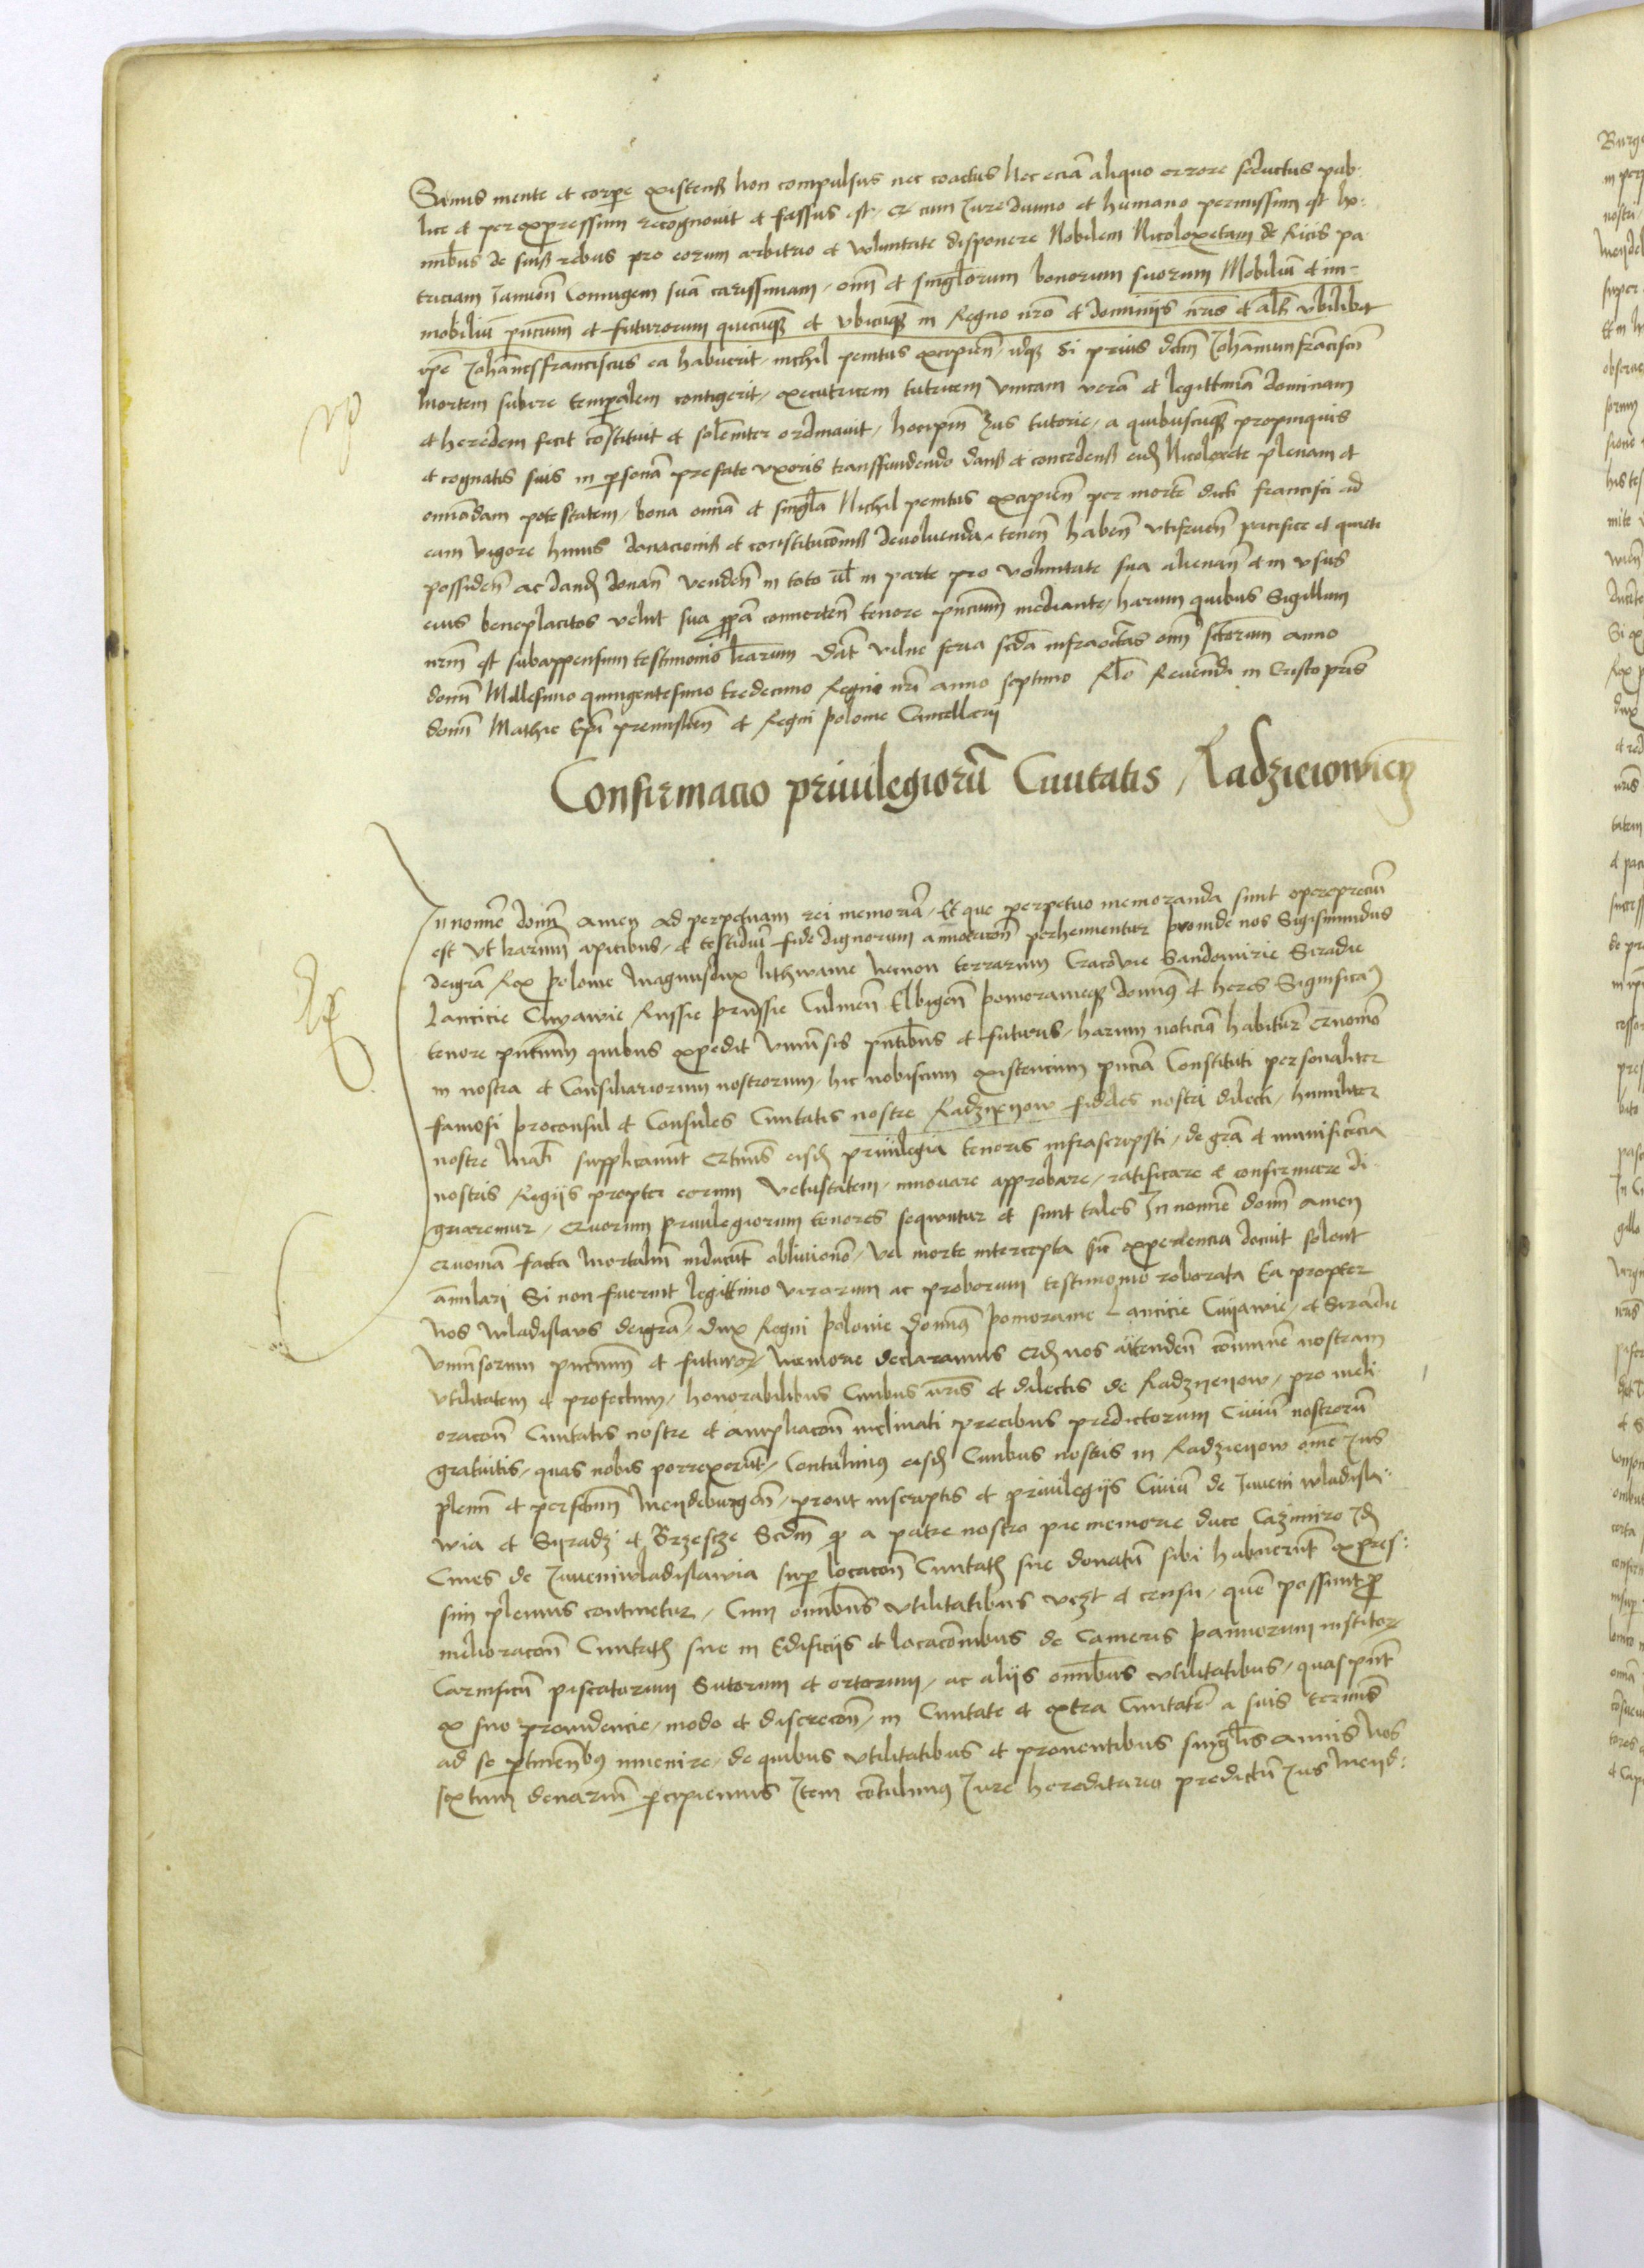 Sanus mente et corpe existens non compulsus nec coactus nec eciā aliquo errore seductus pub-
lice et per expressum recognovit et fassus est, Et cum Jure divino et humano permissum est ho-
minibus de suis rebus pro eorum arbitrio et voluntate disponere Nobilem Nicoloxetam de Ricis pa-
triciam Januen Coniugem suā carissimam, omī et singlorum bonorum suorum Mobiliū et im-
mobiliū pncium et futurorum quecūqz et ubicūqz in Regno nro et dominiis nris et alz ubilibet
ipe Johānesfranciscus ea habuerit, nichil penitus excipien, idqz si prius dcm Johānemfrancīscū
mortem subire temporalem contigerit, executricem tutricem unicam verā et legittimā dominam
et heredem fecit cōstituit et solēniter ordinavit, Jus tutorie, a quibuscūqz propinquis
et cognatis suis in psonā prefate uxoris transffundendo dans et concedens eidz Nicoloxete plenam et
omīodam potestatem, bona omīa et singla Nichil penitus excipien per mortē dicti francisci ad
eam vigore huius donacionis et constitucōnis devoluenda, tenen haben utifruen pacifice et quiete
possiden ac dandz donan venden in toto ul in parte pro voluntate sua alienan et in usus
eius beneplacitos velut sua ppa converten tenore pncium mediante, harum quibus Sigillum
nrm est subappensum testimonio lrarum Dat vilne feria scda infraoctas omī sctorum anno
domī Millesimo quingentesimo tredecimo Regni nri anno septimo Rlo Reverēdi in Cristo pris
domī Mathie Epi premislien et Regni polonie Cancellarij
Confirmacio privilegiorū Civitatis Radzieiowien
In nomīe domī amen ad perpetuam rei memoriā, Et que perpetuo memoranda sunt opereprecīu
est ut lrarum apicibus, et testiūm fide dignorum annotacōn perhennentur proinde nos Sigismundus
deigrā Rex polonie magnusdux lithwanie necnon terrarum Cracovie Sandomirie Siradie
Lancicie Cuyavie Russie prussie Culmen Elbigen pomoranieqz domīus et heres Significam
tenore pntium quibus expedit universis pntibus et futuris, harum noticiā habitur Quomō
in nostra et Consiliariorum nostrorum, hic nobiscum existencium pncia Constituti personaliter
famosi proconsul et Consules Civitatis nostre Radzyeyow fideles nostri dilecti, humiliter
nostre Mati supplicarunt eisdz privilegia tenoris infrascripti, de grā et munificēcia
nostris Regijs propter eorum vetustatem, innovare approbare, ratificare et confirmare di-
gnaremur, Quorum privilegiorum tenores sequuntur et sunt tales In nomīe domī amen
Quoniā facta mortaliū inducūt oblivionē, vel morte intercepta sūt experiencia docuit solent
ānulari Si non fuerint legittimo virorum ac proborum testimonio roborata Ea propter
nos wladislavs deigrā, dux Regni polonie domīus pomoranie Lancicie Cuijawie, et Siradie
universorum pncium et futuror memorie declaramus Qdz nos attenden cōmunē nostram
utilitatem et profectum, honorabilibus Civibus nris et dilectis de Radzyeyow, pro meli-
oracōn Civitatis nostre et ampliacōn inclinati precibus predictorum Civiū nostrorū
gratuitis, quas nobis porrexerūt, Contulimus eisdz Civibus nostris in Radzieyow omē Jus
plenū et perfectum meydeburgen, prout inscriptis et privilegijs Civiū de Juveni wladisla-
wia et Sijradz et Brzescze Scdm q a patre nostro pie memorie duce Cazimiro Jdz
Cives de Juveniwladislawia sup locacōn Civitatz sue donatū sibi habuerūt expres-
sim plenius continetur, Cum omībus utilitatibus uczt et censu, quē possunt p
melioracōn Civitatz sue in Edificijs et locacōnibus de Cameris pannorum institor
Carnificū piscatorum Sutorum et ortorum, ac aliis omībus utilitatibus, quas pnt
ex suo providencie, modo et discrecōn, in Civitate et extra Civitatē a suis termīs
ad se ptinenbus invenire, de quibus utilitatibus et proventibus singlis annis Nos
sextum denariū pcipiemus Item cōtulimus Jure hereditario predictū Jus meijd-